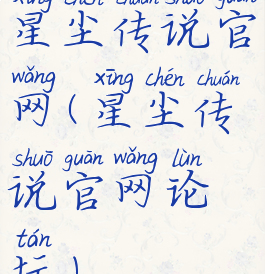 xīng chén chuán shuō guān
星尘传说官
wǎng xīng chén chuán
网(星尘传
shuō guān wǎng lùn
说官网论
tán
坛)